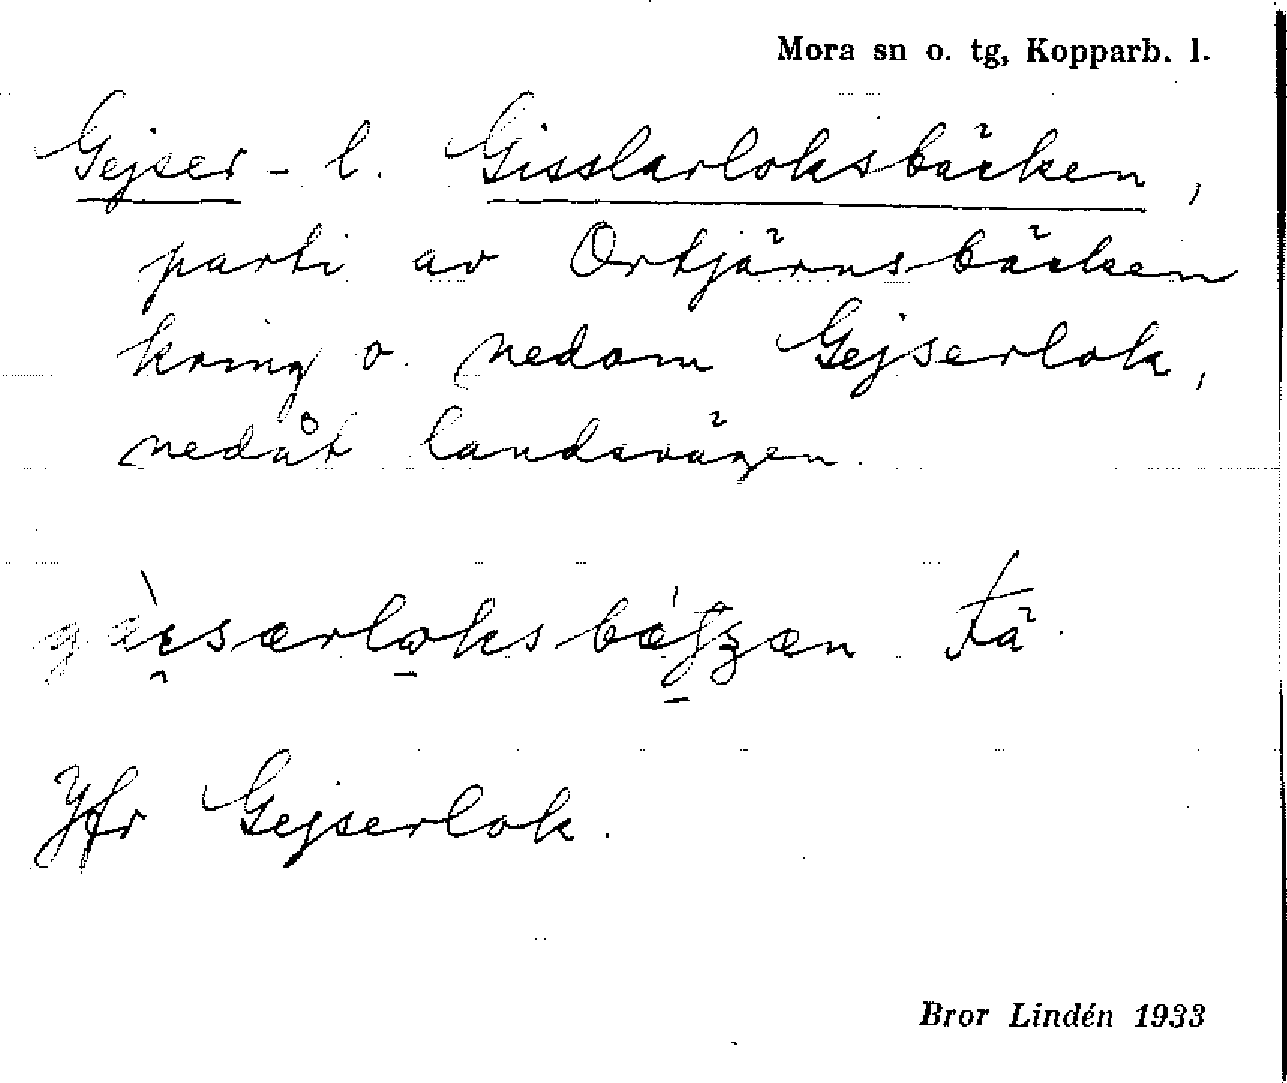 Mora sn o. tg, Kopparb. l.
Gejser- l. Gisslarloksbäcken,
parti av Ortjärnsbäcken
kring o. nedom Gejserlok,
nedåt landsvägen.
Jfr Gejserlok.
Bror Lindén 1933